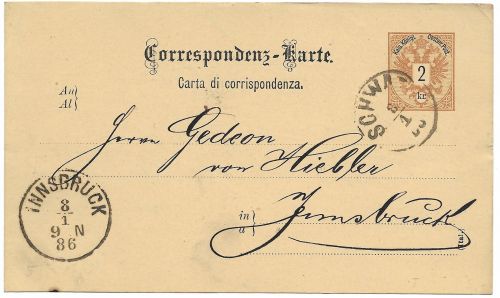 Correspondenz-Karte.
Carta di corrispondenza.
Kais. Königl. Oesterr. Post.
2
kr.
SCHWA
8
1
An
Al
Herrn Gedeon
von Hiebler
in
a
Innsbruck
INNSBRUCK
8
1
9 N
86
(Ital.)